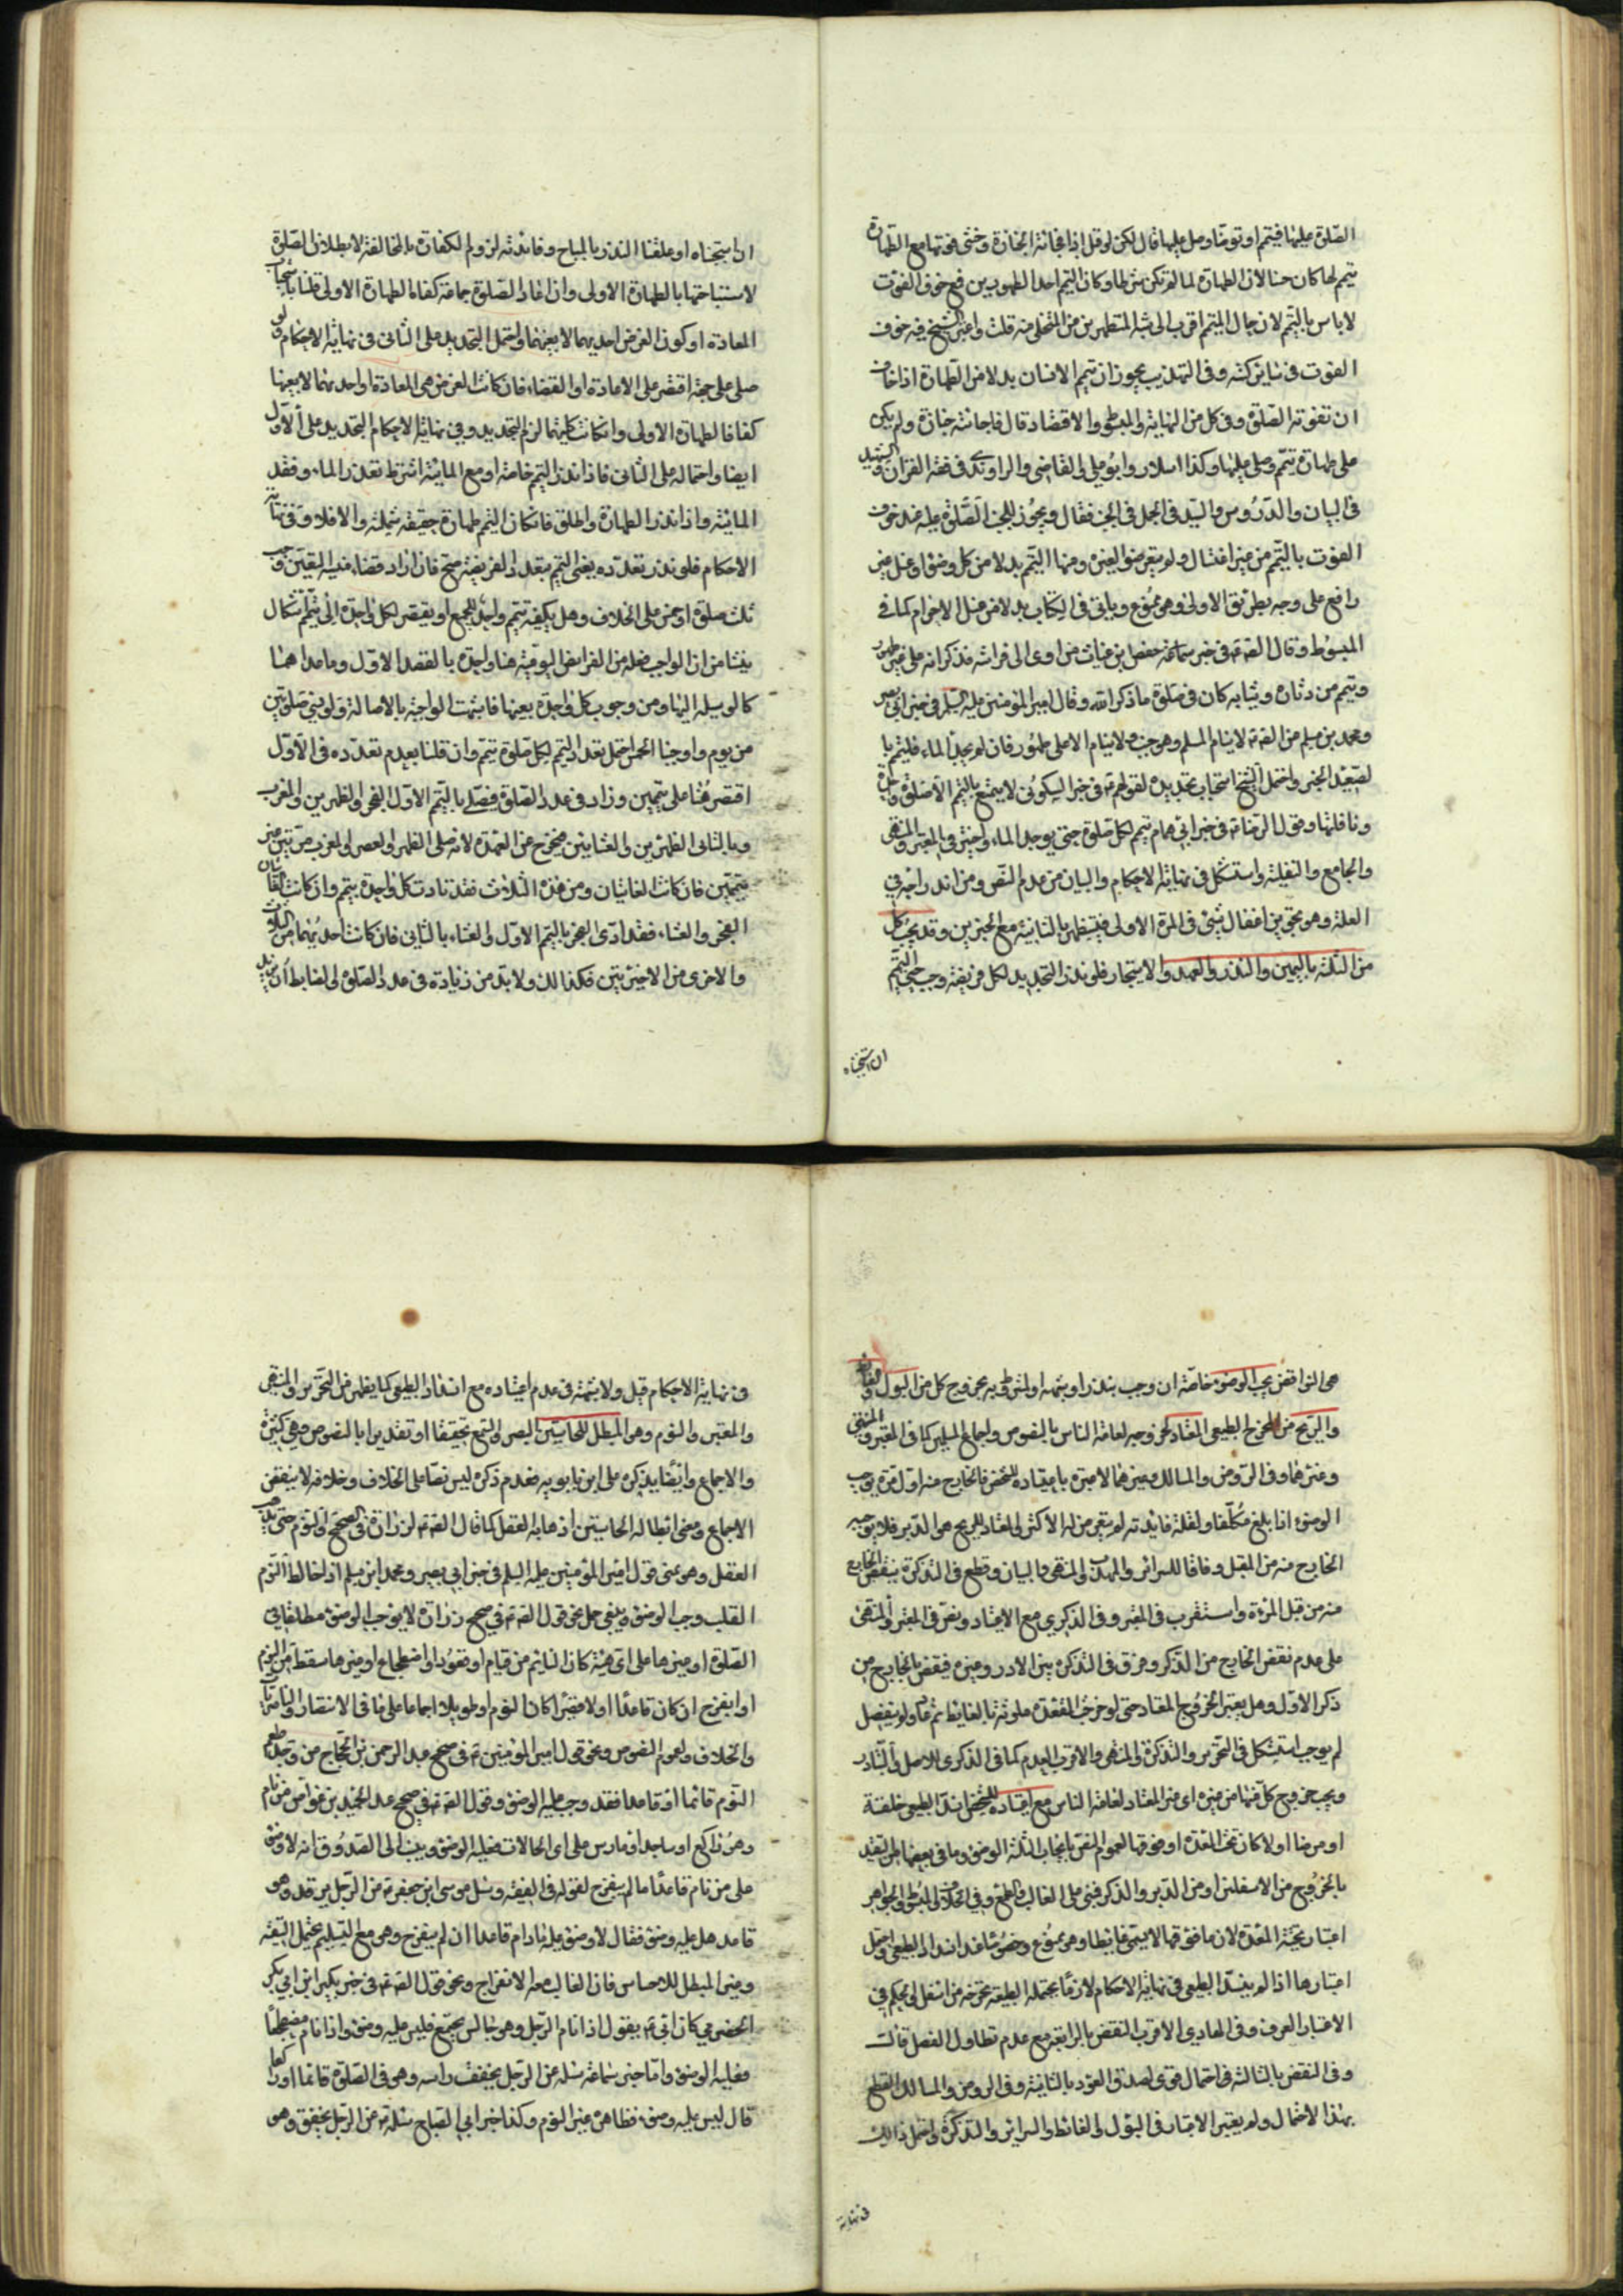 الصلوة عليها فيتيمم او توضأ وصل عليها قال لكن لو قيل اذا فجأته الجنازة وخشي فوتها مع الطهارة
تيمم لها كان حسنا لان الطهارة لما لم تكن شرطا وكان التيمم احد الطهورين فمع خوف الفوت
لا باس بالتيمم لان حال المتيمم اقرب الى شبه المتطهرين من المتخلي منه قلت واعتبر الشيخ فيه خوف
الفوت في سائر كتبه وفى التهذيب يجوز ان تيمم الانسان بدلا من الطهارة اذا خاف
ان تفوته الصلوة وفى كل من النهاية والمبسوط والاقتصاد قال فاجأته جنازة ولم يكن
على طهارة تيمم وصلى عليها وكذا سلار وابو علي والقاضي والراوندي في فقه القران والشهيد
في البيان والدروس والسيد في الجمل في الجنب فقال ويجوز للجنب الصلوة عليه عند خوف
الفوت بالتيمم من غير اغتسال ولم يتعرض لغيره ومنها التيمم بدلا من كل وضوء او غسل غير
رافع على وجه بطريق الاولى وهو ممنوع وياتي في الكتاب بدلا من غسل الاحرام كما في
المبسوط وقال الصم في خبر سماعة حفص بن غياث من اوى الى فراشه فذكر انه على غير طهور
وتيمم من دثاره وثيابه كان في صلوة ما ذكر الله وقال امير المؤمنين عليه السلم في خبر ابي بصير
ومحمد بن مسلم من الصم لا ينام المسلم وهو جنب ولا ينام الا على طهور فان لم يجد الماء فليتيمم با
لصعيد الخبر واحتمل الشيخ استحباب تجديده لقولهم في خبر السكوني لا يتمتع بالتيمم الا صلوة واحدة
ونافلتها وقول الرضا في خبر ابي همام تيمم لكل صلوة حتى يوجد الماء واجتزى في المعتبر والمنتهى
والجامع والنفلية واستشكل في نهاية الاحكام والبيان من عدم النص ومن اندراجه في
العلة وهو تجويز اغفال شيء في المرة الاولى فيستظهر بالثانية مع الخبرين وقد يجب كل
من الثلثة باليمين والنذر والعهد والاستيجار فلو نذر التجديد لكل فريضة وجب حتى التيمم
ان استحبناه
ان استحبناه او علقنا النذر بالمباح وفائدته لزوم الكفارة بالمخالفة لا بطلان الصلوة
لاستباحتها بالطهارة الاولى وان اعاد الصلوة جماعة كفاه الطهارة الاولى قلنا باستحباب
المعادة او كون الفرض احديهما لا بعينها ويحتمل التجديد على الثاني في نهاية الاحكام ولو
صلى على جهة اقتصر على الاعادة او القضاء فان كانت الفرض هي المعادة او احديهما لا بعينها
كفانا لطهارة الاولى وان كانت كليهما لزم التجديد وفي نهاية الاحكام التجديد على الاول
ايضا واحتماله على الثاني فاذا نذر التيمم خاصة او مع المائية اشترط تعذر الماء وفقد
المائية واذا نذر الطهارة واطلق فان كان التيمم طهارة حقيقة شملته والا فلا وفى نهاية
الاحكام فلو نذر تعدده يعني التيمم بتعدد الفريضة صح فان اراد قضاء منسية التعيين وجب
ثلث صلوة او خمس على الخلاف وهل يكفيه تيمم واحد للجميع او يفتقر لكل واحدة الى تيمم اشكال
ينشا من ان الواجب فعله من الفرايض اليومية هنا واحدة بالقصد الاول وما عداهما
كالوسيلة اليها ومن وجوب كل واحدة بعينها فاشبهت الواجبة بالاصالة ولو نسي صلوتين
من يوم واوجبنا الخمس احتمل تعدد التيمم لكل صلوة تيمم وان قلنا بعدم تعدده في الاول
اقتصر هنا على تيممين وزاد في عدد الصلوة فصلى بالتيمم الاول الفجر والظهرين والمغرب
وبالثاني الظهرين والعشاءين فيخرج عن العهدة لانه صلى الظهر والعصر والمغرب مرتين من
تيممين فان كانت الفائتتان ومن هذه الثلاث فقد تادت كل واحدة بتيمم وان كانت الفائتتان
الفجر والعشاء فقد ادى الفجر بالتيمم الاول والعشاء بالثاني فان كانت احديهما من الثلث
والاخرى من الاخيرتين فكذلك ولا بد من زيادة في عدد الصلوة والضابط ان يزيد
هي النواقض يجب الوضوء خاصة ان وجب بنذر او شبهه او لمشروط به بخروج كل من البول والغائط
والريح من المخرج الطبيعي المعتاد لخروجه لعامة الناس بالنصوص واجماع المسلمين كما في المعتبر والمنتهى
وغيرهما وفى الروض والمسالك وغيرهما لا عبرة باعتياده للشخص فالخارج منه اول مرة يوجب
الوضوء اذا بلغ مكلفا ولقلة فائدته لم يتعرض له الاكثر والمعتاد للريح هو الدبر فلا يوجبه
الخارج منه من القبل وفاقا للسرائر والمهذب والمنتهى والبيان وقطع في التذكرة بنقض الخارج
منه من قبل المراة واستقرب في المعتبر وفى الذكرى مع الاعتياد ونص في المعتبر والمنتهى
على عدم نقض الخارج من الذكر وفرق في التذكرة بين الادر وغيره فنقض بالخارج من
ذكر الاول وهل يعتبر الخروج المعتاد حتى لو خرجت المقعدة ملوثة بالغائط ثم عاد ولم ينفصل
لم يوجب استشكل في التحرير والتذكرة والمنتهى والاقرب العدم كما في الذكرى للاصل والتبادر
ويجب خروج كل منها من غيره اى غير المعتاد لعامة الناس مع اعتياده للشخص انسد الطبيعي خلقة
او مرضا او لا كان تحت المعدة او فوقها لعموم النص بايجاب الثلثة الوضوء وما في بعضها من التقييد
بالخروج من الاسفلين او من الدبر والذكر فمبني على الغالب والطبع وفي الخلاف والمبسوط والجواهر
اعتبار تحتية المعدة لان ما فوقها لا يسمى غايطا وهو ممنوع وخصوصا عند انسداد الطبيعي واحتمل
اعتبارها اذا لم ينسد الطبيعي في نهاية الاحكام لان ما تحتمله الطبيعة تخرجه من اسفل والحكم في
الاعتبار العرف وفى الهادي الاقرب النقض بالرابعة مع عدم تطاول الفصل قالت
وفى النقض بالثالثة في احتمال قوى لصدق العود بالثانية وفى الروض والمسالك القطع
بهذا الاحتمال ولم يعتبر الاعتبار في البول والغائط والسرائر والتذكرة واحتمل ذلك
في نهاية
في نهاية الاحكام قيل ولا شبهة في عدم اعتياده مع انسداد الطبيعي كما يظهر من التحرير والمنتهى
والمعتبر والنوم وهو المبطل للحاستين البصر والسمع تحقيقا او تقديرا بالنصوص وهي كثيرة
والاجماع وايضا يذكره على ابن بابويه فعدم ذكره ليس نصا على الخلاف وخلافه لا ينقض
الاجماع ومعنى ابطاله الحاستين اذهابه العقل كما قال الصم لزرارة في الصحيح والنوم حتى يذهب
العقل وهو معنى قول امير المؤمنين عليه السلم في خبر ابي بصير ومحمد ابن مسلم اذا خالط النوم
القلب وجب الوضوء وينبغي حمل نحو قول الصم في صحيح زرارة لا يوجب الوضوء مطلقا في
الصلوة او غيرها على اى هيئة كان النايم من قيام او قعود او اضطجاع او غيرها سقط
او انفرج ان كان قاعدا او لا قصيرا كان النوم او طويلا اجماعا على ما في الانتصار والناصريات
والخلاف ولعموم النصوص ونحو قول امير المؤمنين في صحيح عبد الرحمن بن الحجاج من وجد طعم
النوم قائما او قاعدا فقد وجب عليه الوضوء وقول الصم في صحيح عبد الحميد بن عواض من نام
وهو راكع او ساجد او ماش على اى الحالات فعليه الوضوء وينسب الى الصدوق انه لا وضوء
على من نام قاعدا ما لم ينفرج لقوله في الفقيه وسئل موسى ابن جعفر عن الرجل يرقد وهو
قاعد هل عليه وضوء فقال لا وضوء عليه مادام قاعدا ان لم ينفرج وهو مع التسليم يحتمل التقية
وغير المبطل للاحساس فان الغالب معه الانفراج ونحو قول الصم في خبر بكير ابن ابي بكر
الحضرمي كان ابي يقول اذا نام الرجل وهو جالس مجتمع فليس عليه وضوء واذا نام مضطجعا
فعليه الوضوء واما خبر سماعة سئله عن الرجل يخفق راسه وهو في الصلوة قائما او راكعا
قال ليس عليه وضوء فظاهره غير النوم وكذا خبر ابي الصباح سئله عن الرجل يخفق وهو